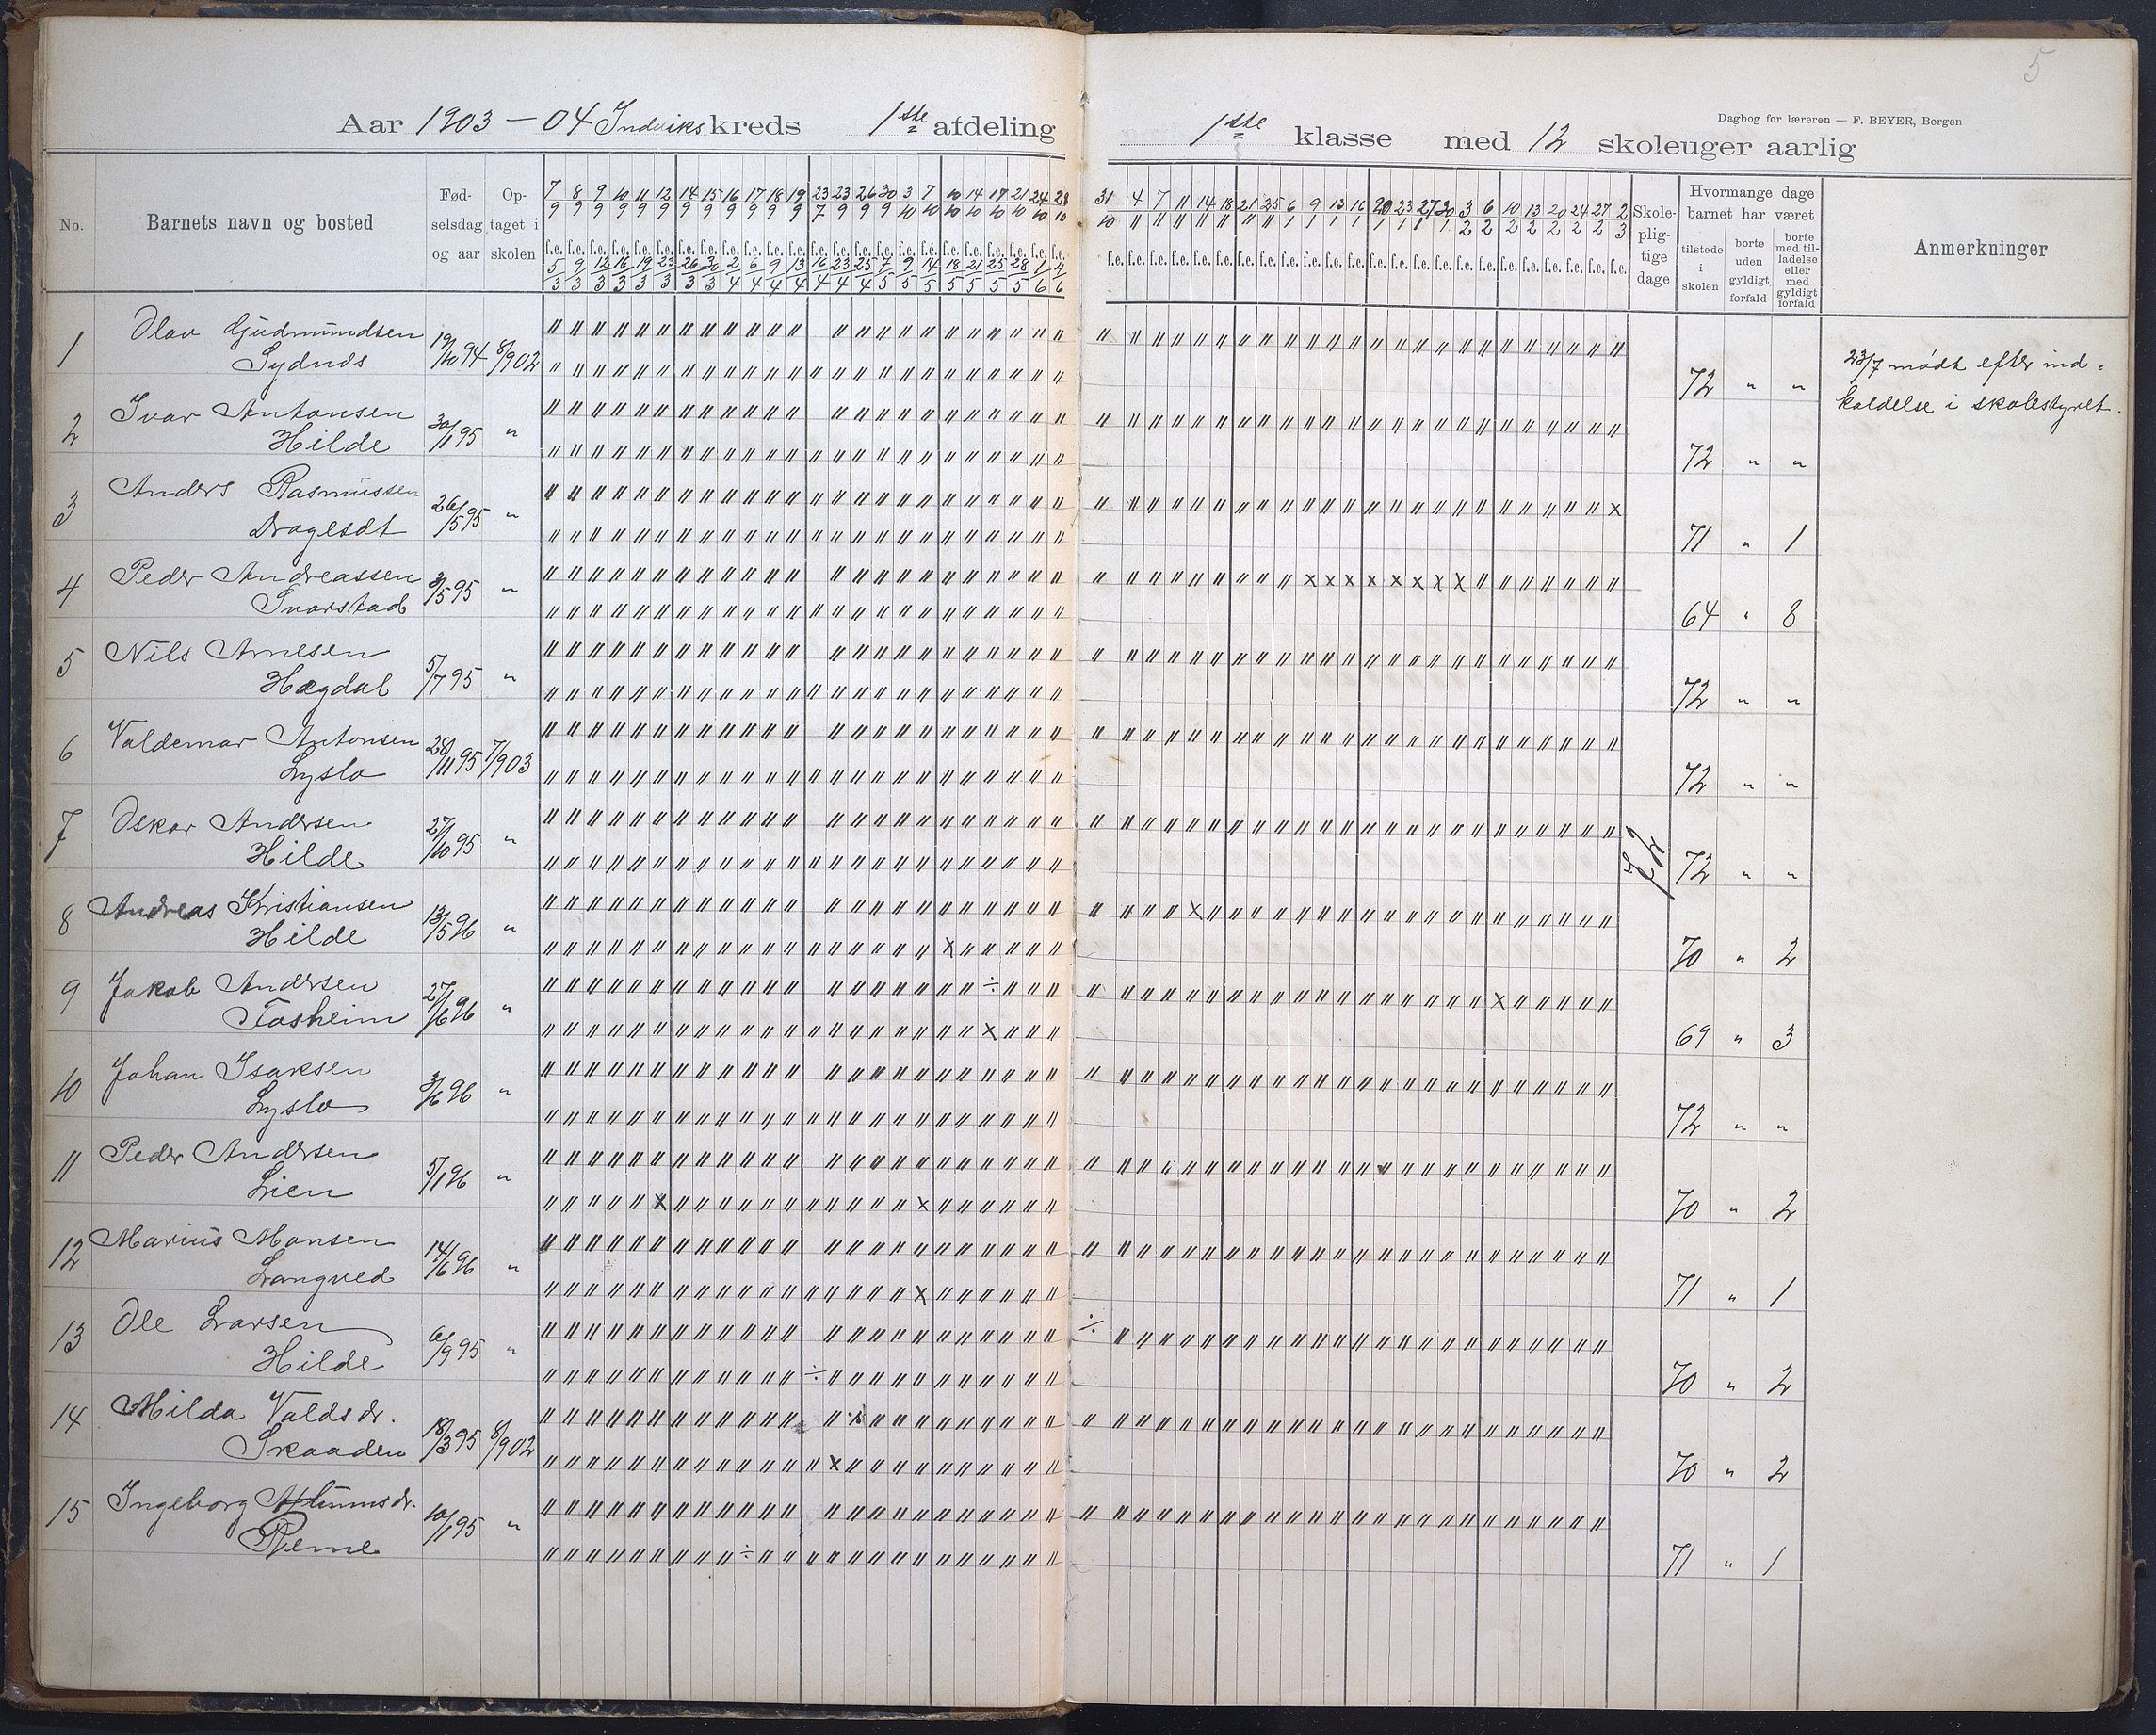 5
Dagbog for læreren — F. BEYER, Bergen
Aar 1903 — 04 Indviks kreds 1ste afdeling 1ste klasse med 12 skoleuger aarlig
No. Barnets navn og bosted Fødselsdag og aar Optaget i skolen Skolepligtige dage Hvormange dage barnet har været Anmerkninger
tilstede i skolen borte uden gyldigt forfald borte med tilladelse eller med gyldigt forfald
7/9 8/9 9/9 10/9 11/9 12/9 14/9 15/9 16/9 17/9 18/9 19/9 23/7 23/9 26/9 30/9 3/10 7/10 10/10 14/10 17/10 21/10 24/10 28/10 31/10 4/11 7/11 11/11 14/11 18/11 21/11 25/11 6/1 9/1 13/1 16/1 20/1 23/1 27/1 30/1 3/2 6/2 10/2 13/2 20/2 24/2 27/2 2/3
f.e. f.e. f.e. f.e. f.e. f.e. f.e. f.e. f.e. f.e. f.e. f.e. f.e. f.e. f.e. f.e. f.e. f.e. f.e. f.e. f.e. f.e. f.e. f.e. f.e. f.e. f.e. f.e. f.e. f.e. f.e. f.e. f.e. f.e. f.e. f.e. f.e. f.e. f.e. f.e. f.e. f.e. f.e. f.e. f.e. f.e. f.e. f.e.
5/3 9/3 12/3 16/3 19/3 23/3 26/3 30/3 2/4 6/4 9/4 13/4 16/4 23/4 25/4 7/5 9/5 14/5 18/5 21/5 25/5 28/5 1/6 4/6
1 Olav Gudmundsen 19/10 94 8/9 02
Sydnds 72 " " 23/7 mødt efter ind-
kaldelse i skolestyret.
2 Ivar Antonsen 30/1 95 "
Hilde 72 " "
3 Anders Rasmussen 26/5 95 "
Dragesdt 71 " 1
4 Peder Andreassen 3/5 95 "
Svarstad 64 " 8
5 Nils Arnesen 5/7 95 "
Hægdal 72 " "
6 Valdemar Antonsen 28/11 95 7/9 03
Lyslo 72 " "
7 Oskar Andersen 27/10 95 "
Hilde 72 72 " "
8 Andreas Kristiansen 13/5 96 "
Hilde 70 " 2
9 Jakob Andersen 27/6 96 "
Tasheim 69 " 3
10 Johan Isaksen 3/6 96 "
Lyslo 72 " "
11 Peder Andersen 5/1 96 "
Lien 70 " 2
12 Marius Monsen 14/6 96 "
Langved 71 " 1
13 Ole Larsen 6/9 95 "
Hilde 70 " 2
14 Milda Valdsdr. 18/3 95 8/9 02
Skaaden 70 " 2
15 Ingeborg 10/1 95 "
Reme 71 " 1